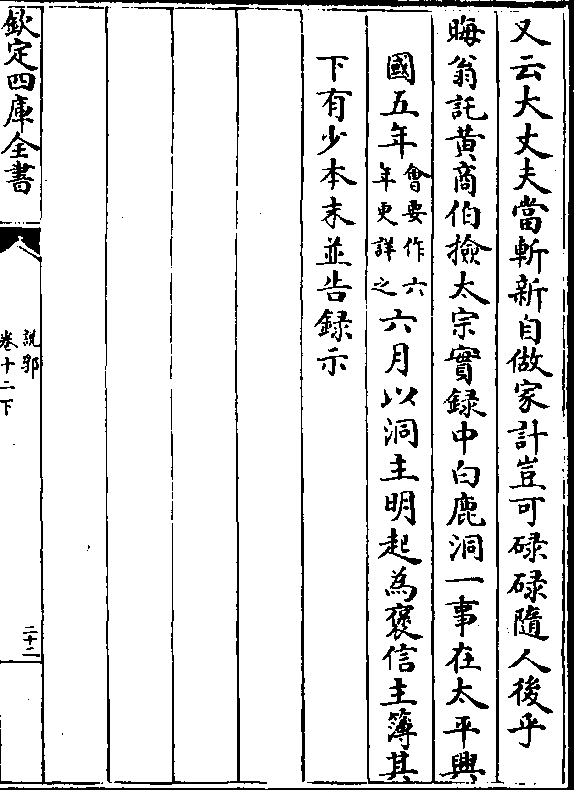 又云大丈夫當斬新自做家計豈可碌碌隨人後乎
晦翁託黃商伯撿太宗實録中白鹿洞一事在太平興
國五年會要作六年更詳之六月以洞主明起為褒信主簿其
下有少本末並告録示
欽定四庫全書
說郛
卷十二下
二十二